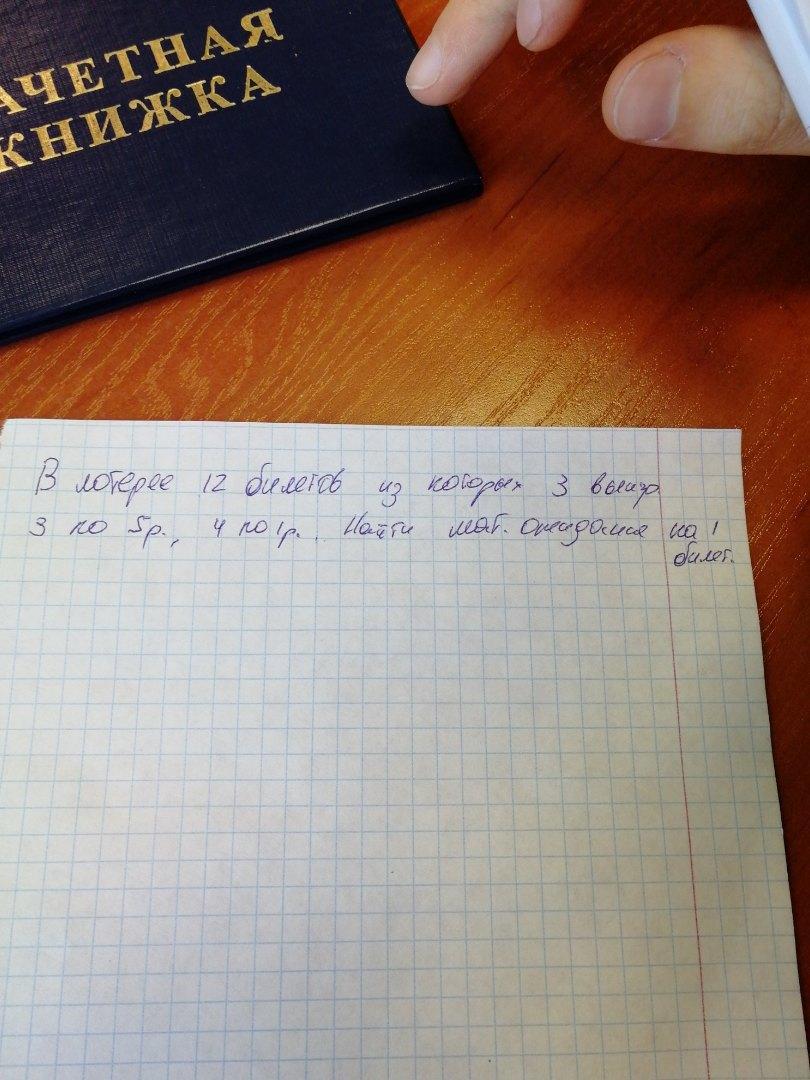 АЧЕТНАЯ
КНИЖКА
В лотерее 12 билетов из которых 3 выигр
3 по 5р., 4 по 1р. Найти мат. ожидания на 1
билет.